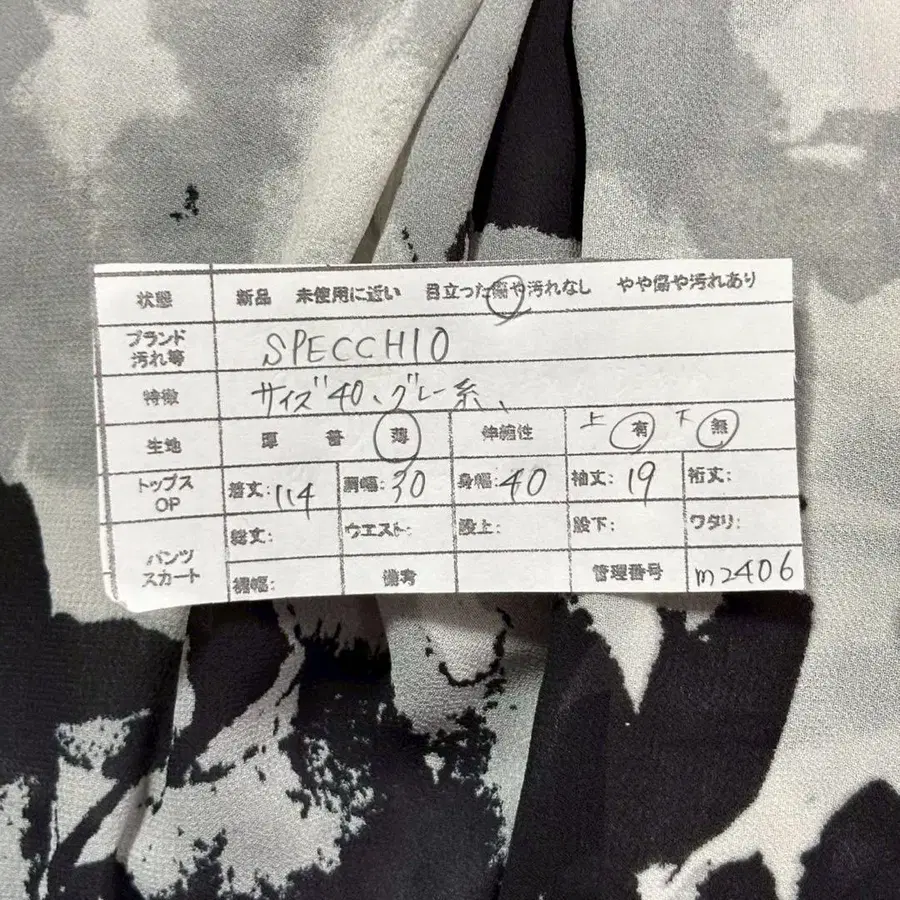 状態 新品 未使用に近い 目立った傷や汚れなし やや傷や汚れあり
ブランド 汚れ等 SPECCHIO
特徴 サイズ40、グレー系、
生地 厚 普 薄 伸縮性 上 有 下 無
トップス OP 着丈:114 肩幅:30 身幅:40 袖丈:19 裄丈:
パンツ スカート 総丈: ウエスト: 股上: 股下: ワタリ:
裾幅: 備考 管理番号 m2406